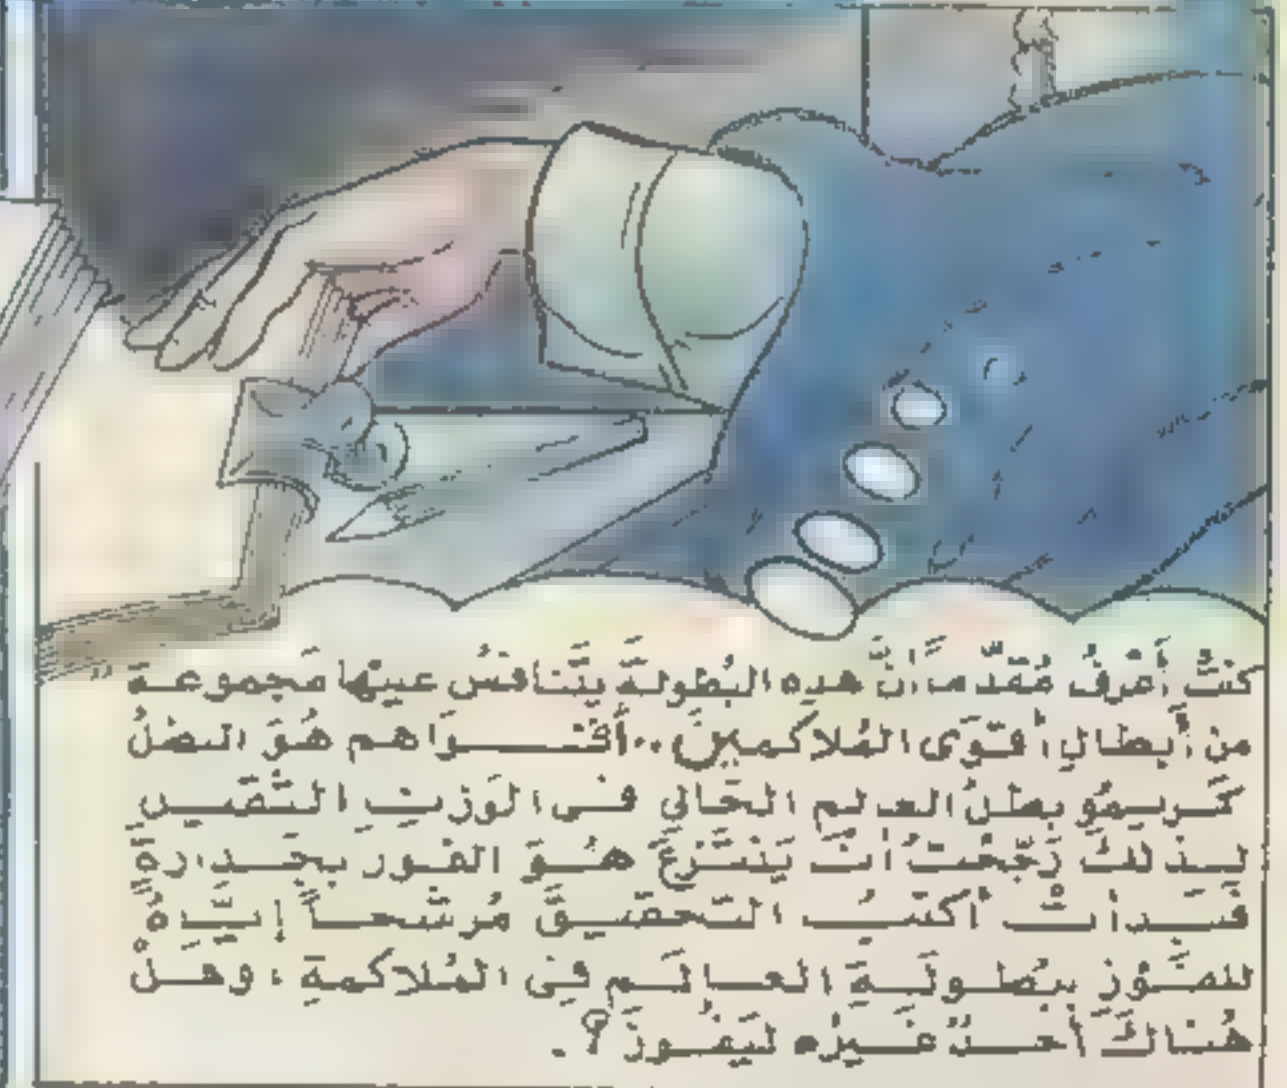 كُنْتُ أَعْرِفُ مُقَدَّمًا أَنَّ هَذِهِ البُطُولَةَ يَتَنَافَسُ عَلَيْهَا مَجْمُوعَةٌ
مِنْ أَبْطَالِ أَقْوَى المُلَاكِمِينَ .. أَقْــوَاهُم هُوَ البَطَلُ
كْرِيمُو بَطَلُ العَالَمِ الحَالِي فِى الوَزْنِ الثَّقِيلِ
لِذَلِكَ رَجَّحْتُ أَنْ يَنْتَزِعَ هُوَ الفَوْزَ بِجَدَارَةٍ
فَبَدَأْتُ أَكْتُبُ التَّحْقِيقَ مُرَشِّحاً إِيَّاهُ
لِلفَوْزِ بِبُطُولَةِ العَالَمِ فِى المُلَاكَمَةِ ، وَهَلْ
هُنَاكَ أَحَدٌ غَيْرُه لِيَفُوزَ ؟ .